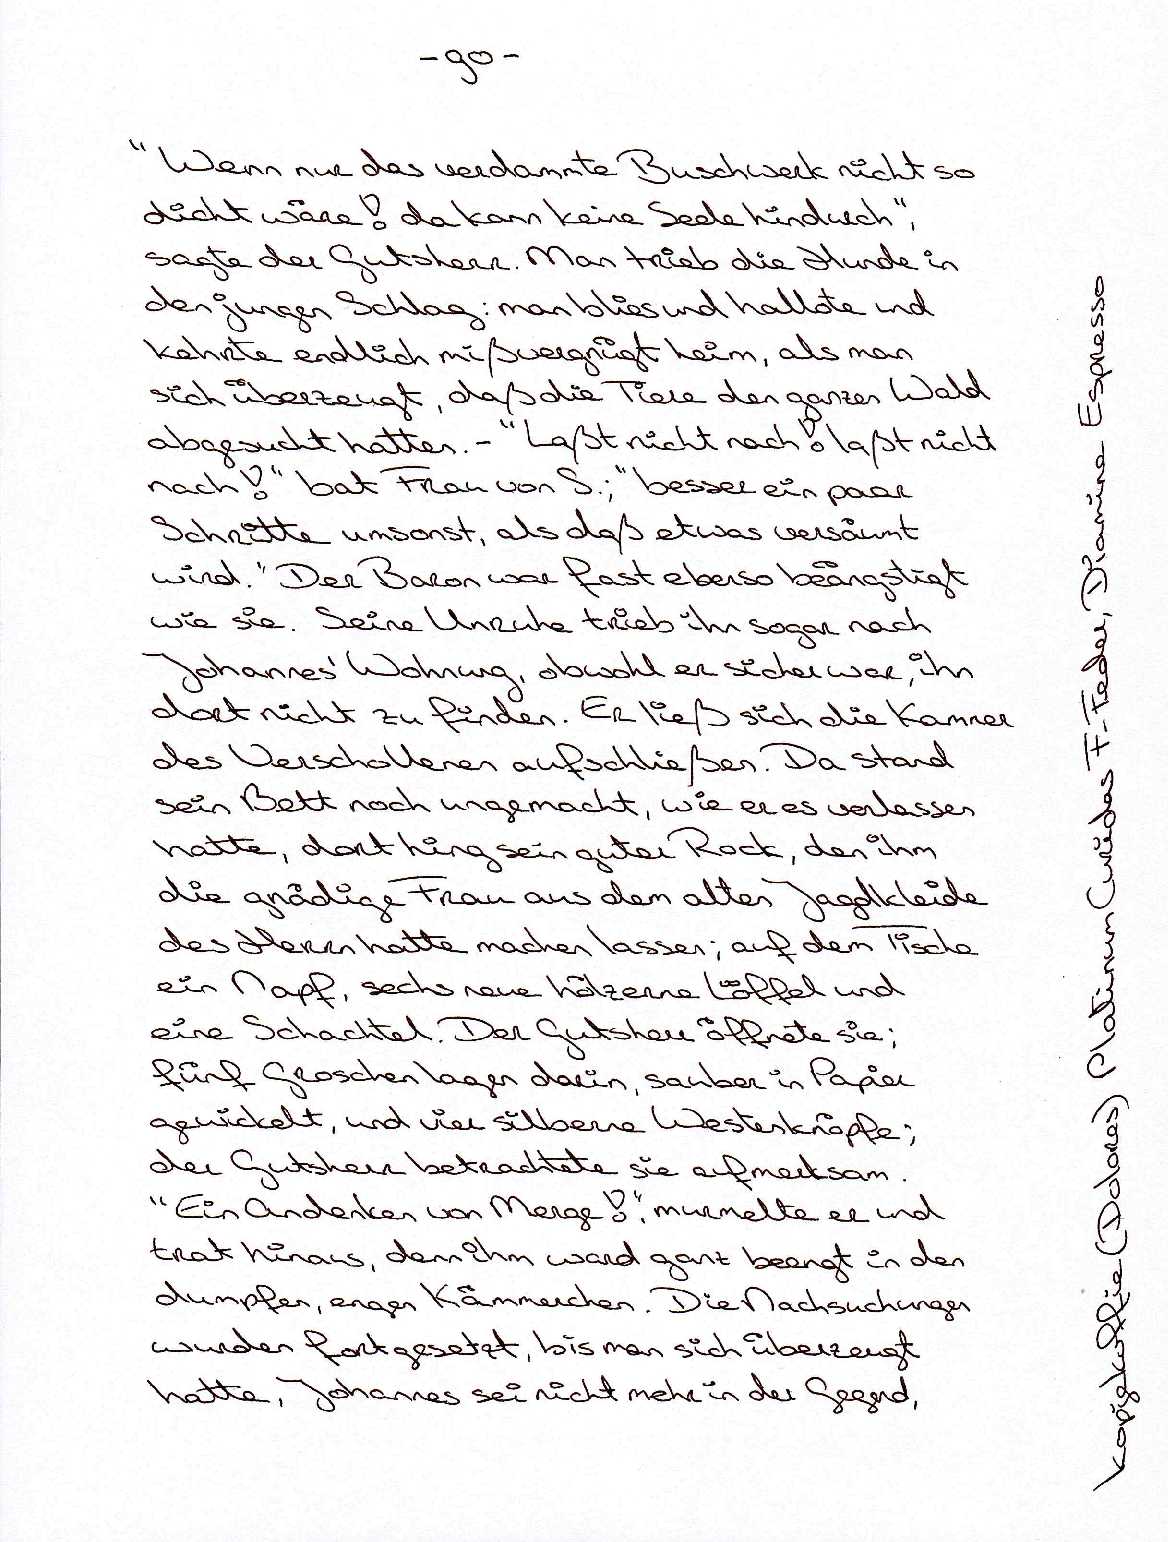 - 90 -
"Wenn nur das verdammte Buschwerk nicht so
dicht wäre! da kann keine Seele hindurch",
sagte der Gutsherr. Man trieb die Hunde in
den jungen Schlag: man blies und hallote und
kehrte endlich mißvergnügt heim, als man
sich überzeugt, daß die Tiere den ganzen Wald
abgesucht hatten. - "Laßt nicht nach! laßt nicht
nach!" bat Frau von S.; "besser ein paar
Schritte umsonst, als daß etwas versäumt
wird." Der Baron war fast ebenso beängstigt
wie sie. Seine Unruhe trieb ihn sogar nach
Johannes' Wohnung, obwohl er sicher war, ihn
dort nicht zu finden. Er ließ sich die Kammer
des Verschollenen aufschließen. Da stand
sein Bett noch ungemacht, wie er es verlassen
hatte, dort hing sein guter Rock, den ihm
die gnädige Frau aus dem alten Jagdkleide
des Herrn hatte machen lassen; auf dem Tische
ein Napf, sechs neue hölzerne Löffel und
eine Schachtel. Der Gutsherr öffnete sie;
fünf Groschen lagen darin, sauber in Papier
gewickelt, und vier silberne Westenknöpfe;
der Gutsherr betrachtete sie aufmerksam.
"Ein Andenken von Mergel", murmelte er und
trat hinaus, denn ihm ward ganz beengt in dem
dumpfen, engen Kämmerchen. Die Nachsuchungen
wurden fortgesetzt, bis man sich überzeugt
hatte, Johannes sei nicht mehr in der Gegend,
(Dolores) Platinum Curidas F-Feder, Diamine Espresso